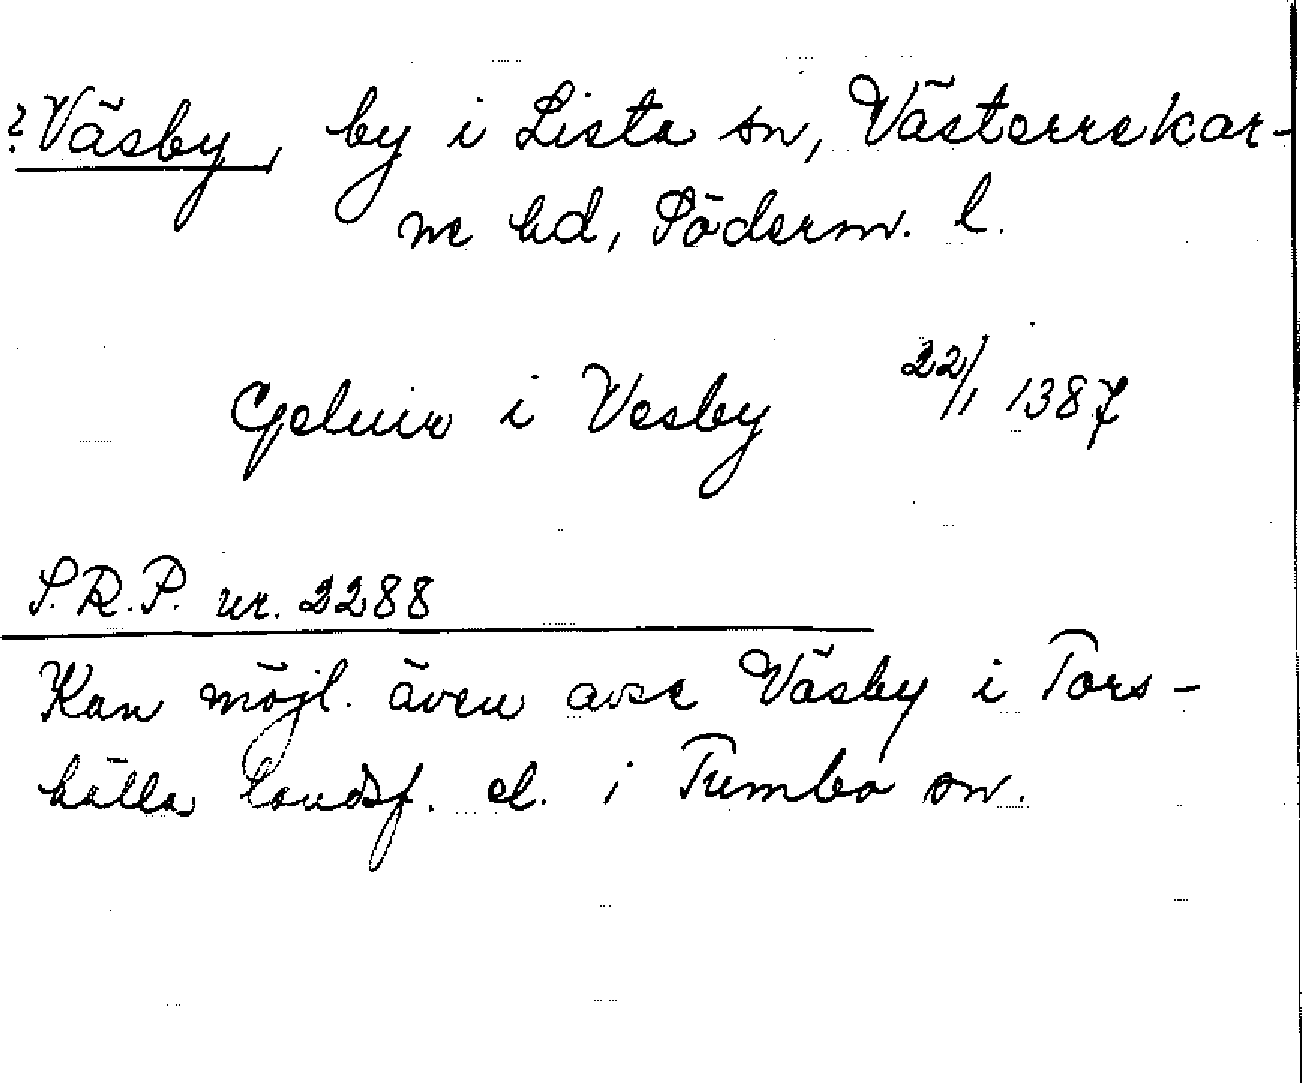 ? Väsby, by i Lista sn, Västerrekar-
ne hd, Söderm. l.
i Vesby 22/1 1387
S.R.P. nr. 2288
Kan möjl. även avse Väsby i Tors-
hälla landsf. el. i Tumbo sn.